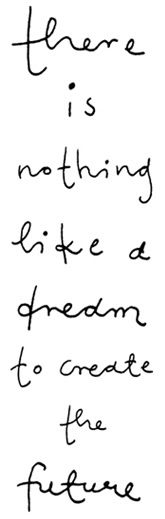 there
is
nothing
like a
dream
to create
the
future